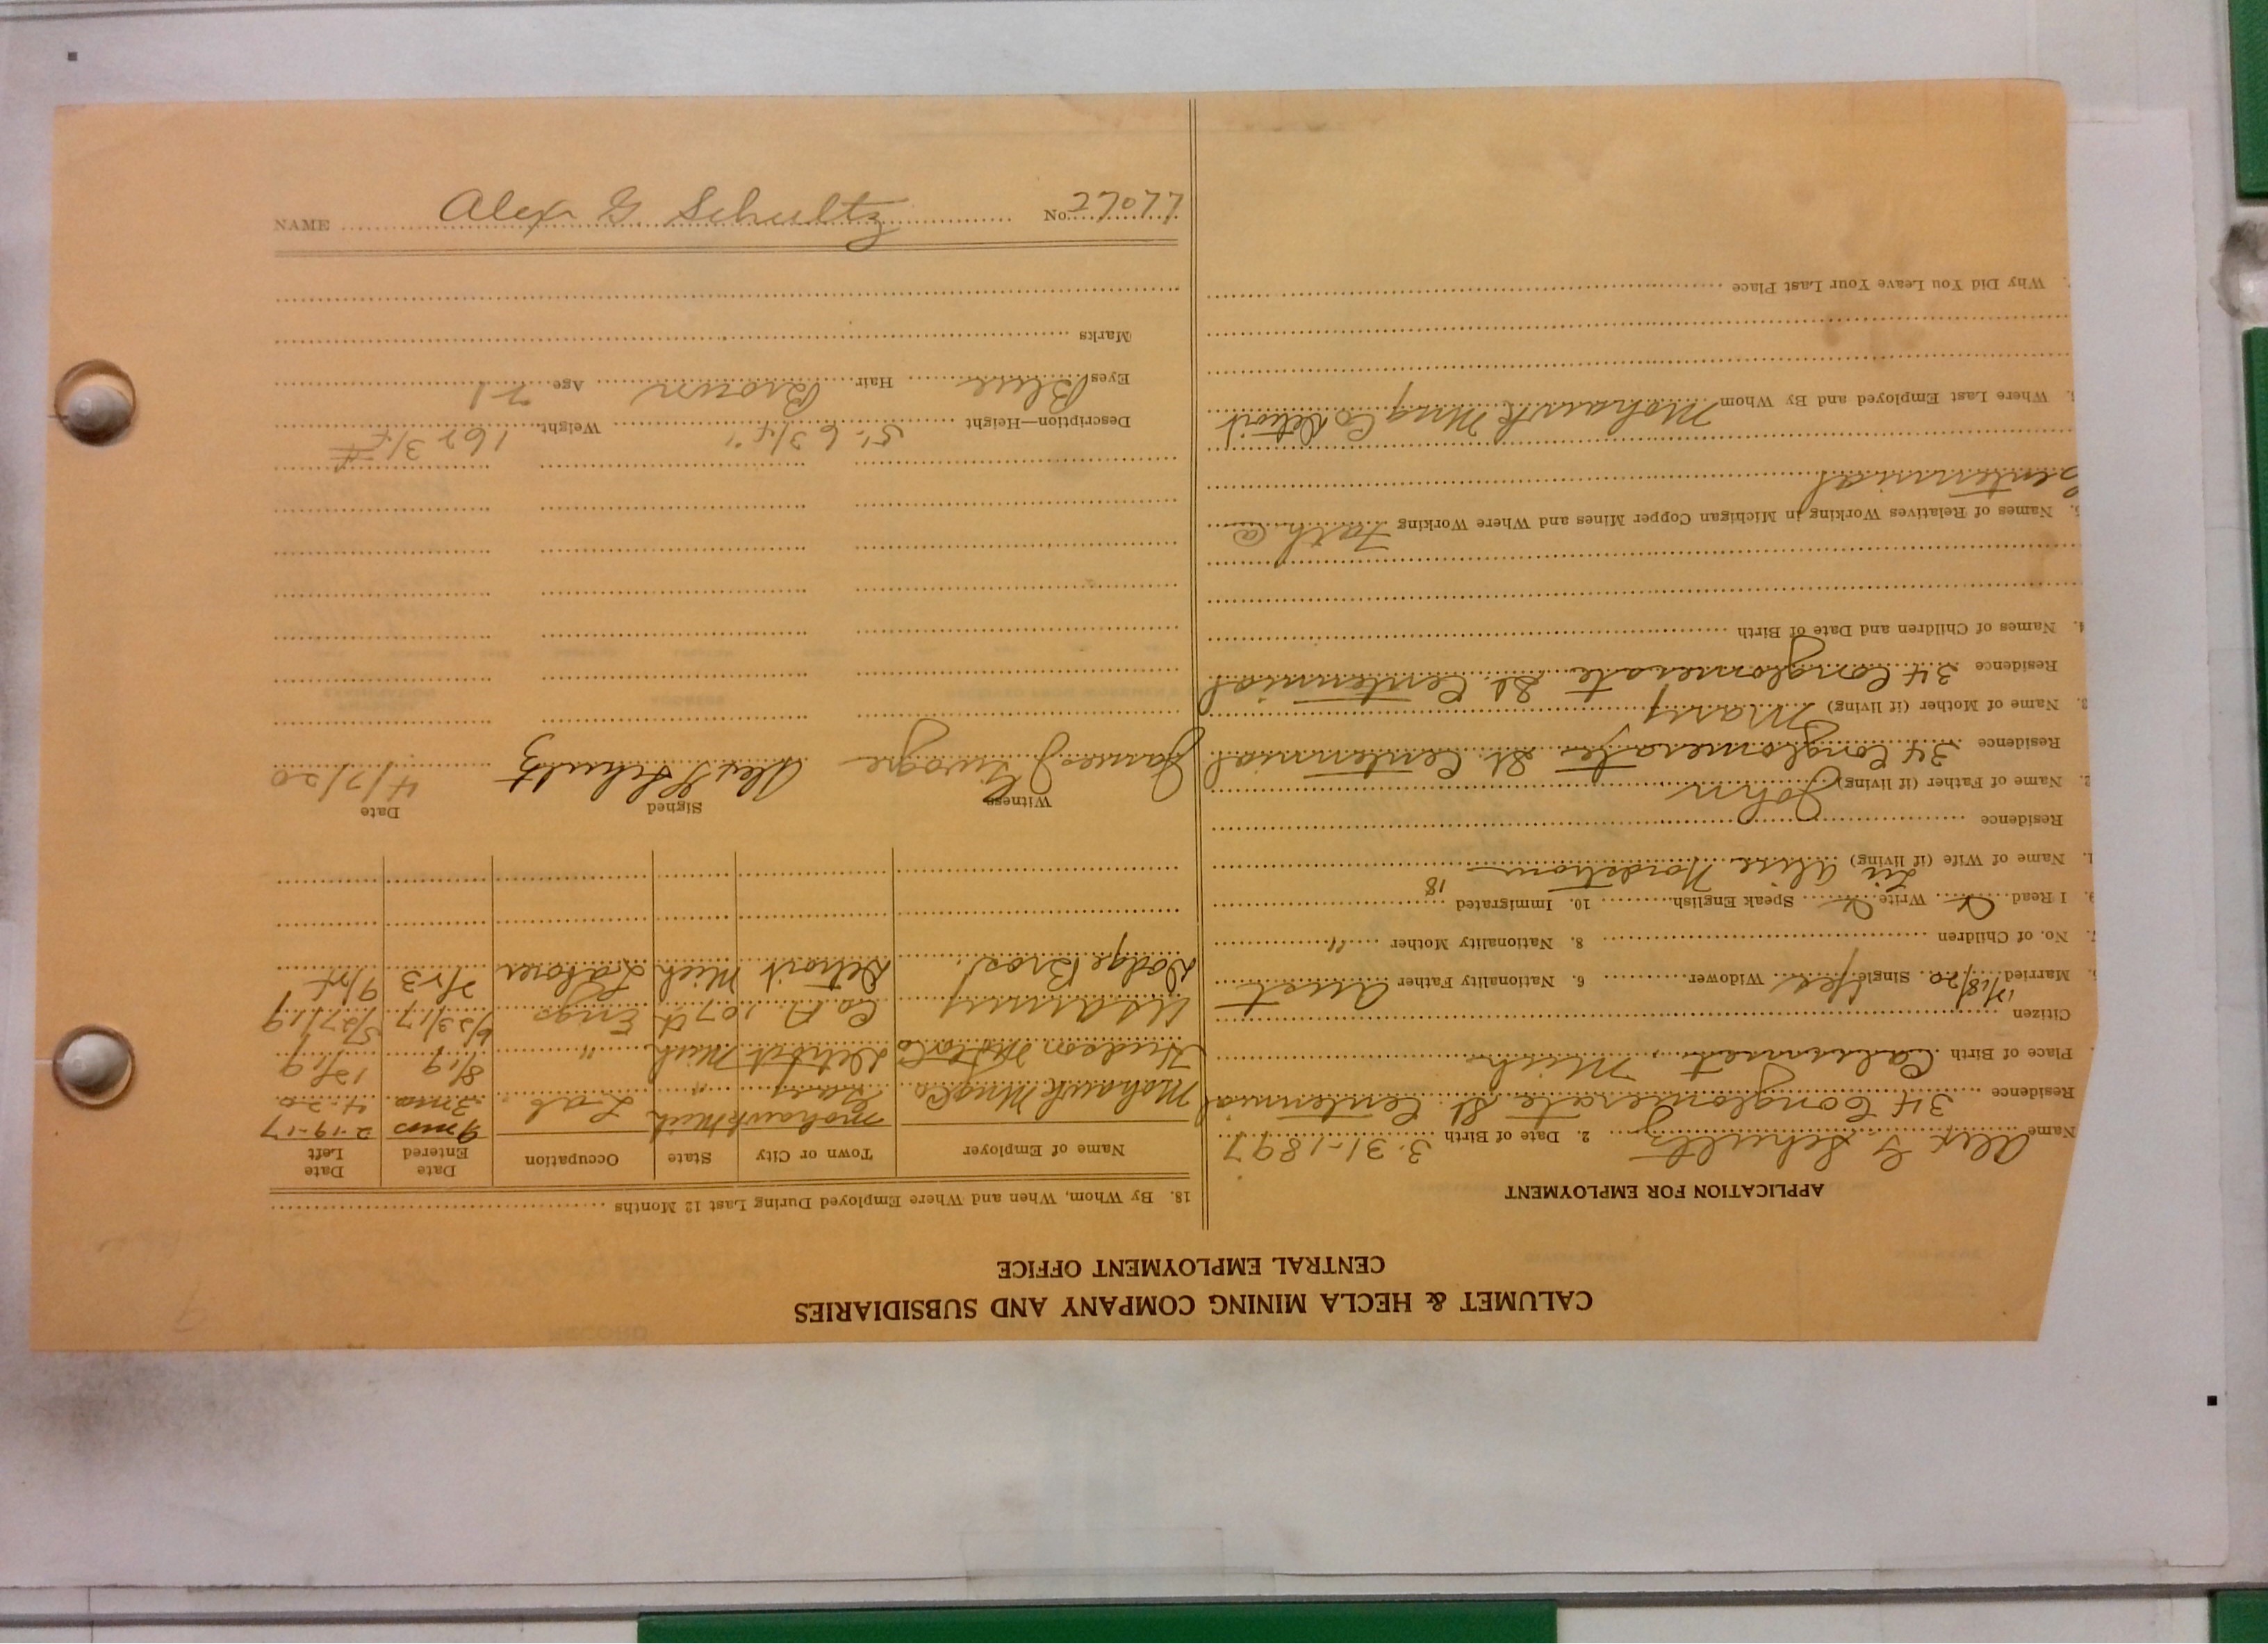 CALUMET & HECLA MINING COMPANY AND SUBSIDIARIES
CENTRAL EMPLOYMENT OFFICE
APPLICATION FOR EMPLOYMENT
Name Alex G. Schultz 2. Date of Birth 3-31-1897
Residence 34 Conglomerate St. Centennial
Place of Birth Calumet, Mich
Citizen
Married 12/18/20 Single Yes Widower 6. Nationality Father Aust
7. No. of Children 8. Nationality Mother "
9. I Read Write Speak English 10. Immigrated 18
1. Name of Wife (if living) Alice Nordstrom
Residence
2. Name of Father (if living) John
Residence 34 Conglomerate St. Centennial
3. Name of Mother (if living) Mary
Residence 34 Conglomerate St. Centennial
4. Names of Children and Date of Birth
5. Names of Relatives Working in Michigan Copper Mines and Where Working Fath @
Centennial
Where Last Employed and By Whom Mohawk Mng Co Detroit
Why Did You Leave Your Last Place
18. By Whom, When and Where Employed During Last 12 Months
Name of Employer Town or City State Occupation Date Entered Date Left
Mohawk Mich 9 mos 2-19-17
Mohawk Mng Co " Lab 3 mo 4-20
Hudson Motor Co Detroit Mich " 8/19 12/19
US Army Co. A. 107th Engs 6/23/17 5/27/19
Dodge Bros. Detroit Mich Laborer 2/23 9/24
Witness Signed Date
James J. Alex G Schultz 4/7/20
Description—Height 5' 6 3/4" Weight 162 3/4 #
Eyes Blue Hair Brown Age 21
Marks
NAME Alex G Schultz No. 27077